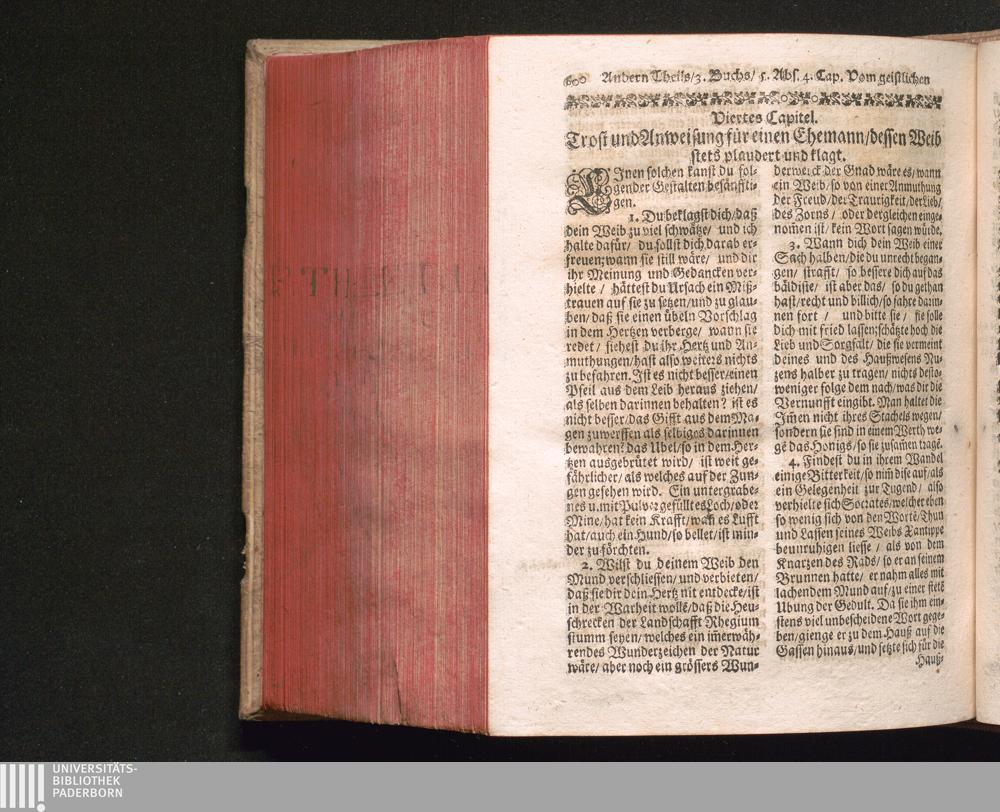 600 Andern Theils/3. Buchs/ 5. Abs. 4. Cap. Vom geistlichen
Viertes Capitel.
Trost und Anweisung für einen Ehemann/dessen Weib
stets plaudert und klagt.
EInen solchen kanst du fol-
gender Gestalten besänffti-
gen.
1. Du beklagst dich/daß
dein Weib zu viel schwätze/ und ich
halte dafür/ du sollst dich darab er-
freuen; wann sie still wäre/ und dir
ihr Meinung und Gedancken ver-
hielte / hättest du Ursach ein Miß-
trauen auf sie zu setzen/und zu glau-
ben/daß sie einen übeln Vorschlag
in dem Hertzen verberge/ wann sie
redet/ siehest du ihr Hertz und An-
muthungen/hast also weiters nichts
zu befahren. Ist es nicht besser/einen
Pfeil aus dem Leib heraus ziehen/
als selben darinnen behalten? ist es
nicht besser/das Gifft aus dem Ma-
gen zuwerffen als selbiges darinnen
bewahren? das Ubel/so in dem Her-
tzen ausgebrütet wird/ ist weit ge-
fährlicher/als welches auf der Zun-
gen gesehen wird. Ein untergrabe-
nes u. mit Pulver gefülltes Loch/oder
Mine/hat kein Krafft/wañ es Lufft
hat/auch ein Hund/so bellet/ist min-
der zu förchten.
2. Wilst du deinem Weib den
Mund verschliessen/und verbieten/
daß sie dir dein Hertz nit entdecke/ist
in der Warheit wolls/daß die Heu-
schrecken der Landschafft Rhegium
stumm seyen/welches ein im̃erwäh-
rendes Wunderzeichen der Natur
wäre/ aber noch ein grössers Wun-
derwerck der Gnad wäre es/wann
ein Weib/so von einer Anmuthung
der Freud/der Traurigkeit/der Lieb/
des Zorns / oder dergleichen einge-
nom̃en ist/kein Wort sagen würde.
3. Wann dich dein Weib einer
Sach halben/die du unrecht began-
gen/ strafft/ so bessere dich auf das
bäldiste/ ist aber das/ so du gethan
hast/recht und billich/so fahre darin-
nen fort / und bitte sie/ sie solle
dich mit fried lassen; schätzte hoch die
Lieb und Sorgfalt/ die sie vermeint
deines und des Haußwesens Nu-
zens halber zu tragen/ nichts desto-
weniger folge dem nach/was dir die
Vernunfft eingibt. Man haltet die
Im̃en nicht ihres Stachels wegen/
sondern sie sind in einem Werth we-
gẽ das Honigs/so sie zusam̃en tragẽ.
4. Findest du in ihrem Wandel
einige Bitterkeit/so nim̃ dise auf/als
ein Gelegenheit zur Tugend/ also
verhielte sich Socrates/welcher eben
so wenig sich von den Wortẽ/Thun
und Lassen seines Weibs Xantippe
beunruhigen liesse / als von dem
Knarzen des Rads/ so er an seinem
Brunnen hatte/ er nahm alles mit
lachendem Mund auf/zu einer stetẽ
Ubung der Gedult. Da sie ihm ein-
stens viel unbescheidene Wort gege-
ben/gienge er zu dem Hauß auf die
Gassen hinaus/und setzte sich für die
Hauß-
UNIVERSITÄTS-
BIBLIOTHEK
PADERBORN